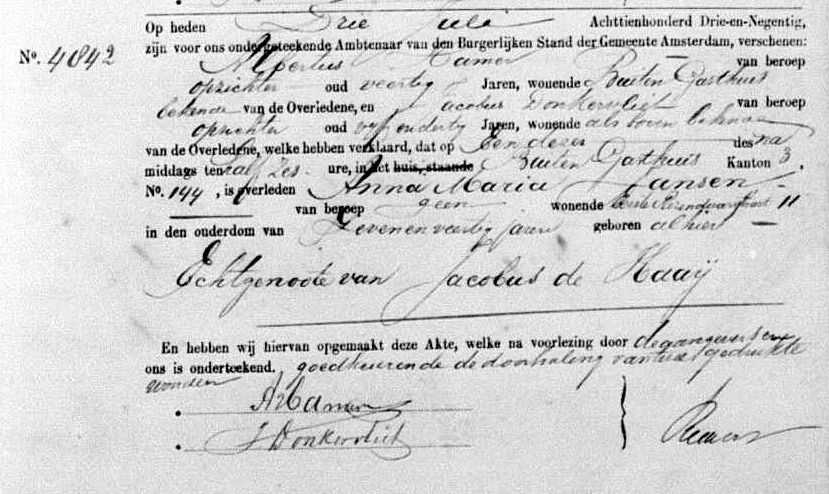 Op heden Drie Juli Achttienhonderd Drie-en-Negentig,
No. 4842 zijn voor ons ondergeteekende Ambtenaar van den Burgerlijken Stand der Gemeente Amsterdam, verschenen:
Hamer van beroep
opzichter oud veertig Jaren, wonende Buiten Gasthuis
bekende van de Overledene, en Jacobus Donkervliet van beroep
opzichter oud vyf en dertig Jaren, wonende als boven bekende
van de Overledene, welke hebben verklaard, dat op Een dezer des na
middags ten half zes ure, in het huis, staande Buiten Gasthuis Kanton 3,
No. 144, is overleden Anna Maria Jansen
van beroep geen wonende Eerste 11
in den ouderdom van Zeven en veertig jaren geboren alhier
Echtgenoote van Jacobus de Haaÿ
En hebben wij hiervan opgemaakt deze Akte, welke na voorlezing door de
ons is onderteekend. goedkeurende de doorhaling van twee gedrukte
woorden
A Hamer
J Donkervliet